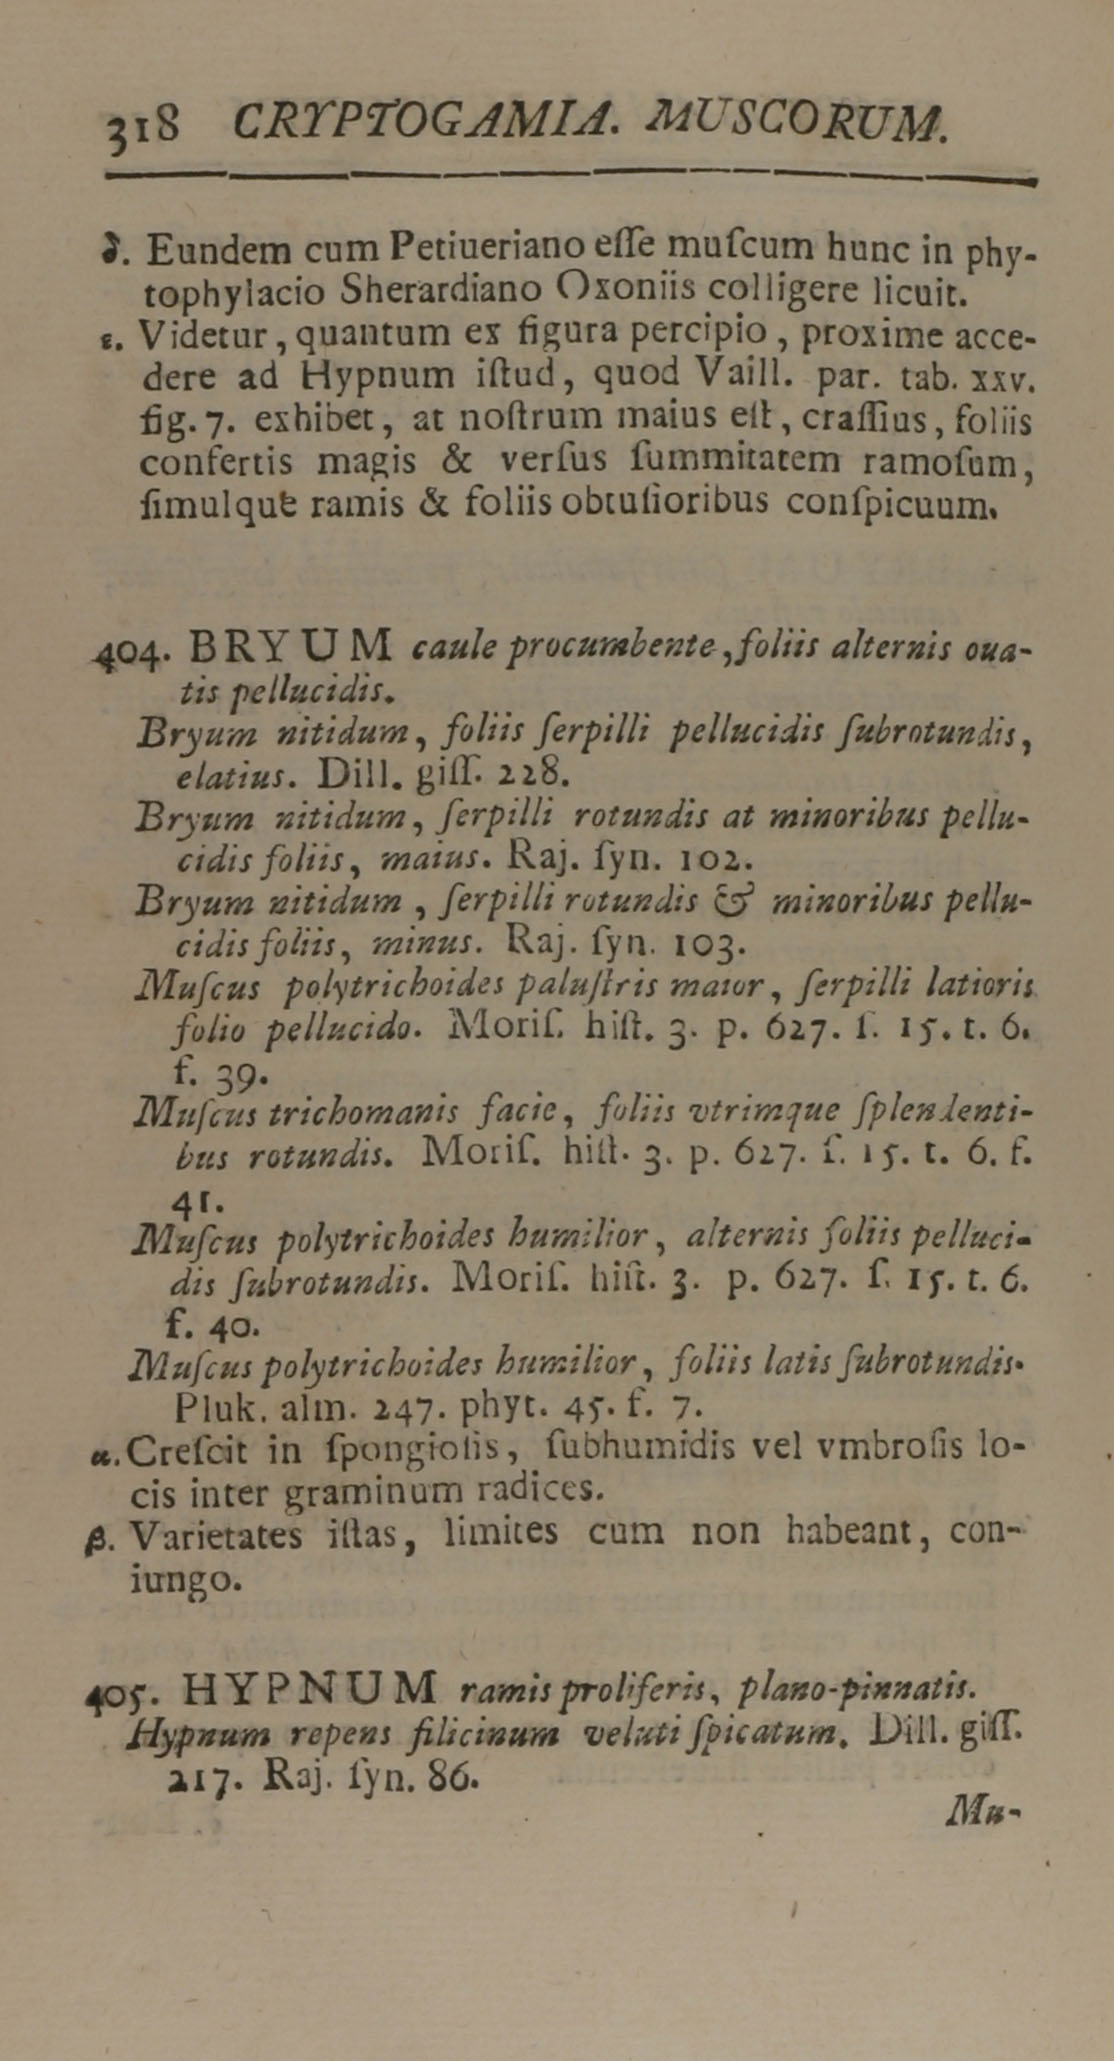 318 CRYPTOGAMIA. MUSCORUM.
δ. Eundem cum Petiueriano eſſe muſcum hunc in phy-
tophylacio Sherardiano Oxoniis colligere licuit.
ε. Videtur, quantum ex figura percipio, proxime acce-
dere ad Hypnum iſtud, quod Vaill. par. tab. xxv.
fig. 7. exhibet, at noſtrum maius eſt, craſſius, foliis
confertis magis & verſus ſummitatem ramoſum,
ſimulque ramis & foliis obtuſioribus conſpicuum.
404. BRYUM caule procumbente, foliis alternis oua-
tis pellucidis.
Bryum nitidum, foliis ſerpilli pellucidis ſubrotundis,
elatius. Dill. giſſ. 228.
Bryum nitidum, ſerpilli rotundis at minoribus pellu-
cidis foliis, maius. Raj. ſyn. 102.
Bryum nitidum, ſerpilli rotundis & minoribus pellu-
cidis foliis, minus. Raj. ſyn. 103.
Muſcus polytrichoides paluſtris maior, ſerpilli latioris
folio pellucido. Moriſ. hiſt. 3. p. 627. ſ. 15. t. 6.
f. 39.
Muſcus trichomanis facie, foliis vtrimque ſplendenti-
bus rotundis. Moriſ. hiſt. 3. p. 627. ſ. 15. t. 6. f.
41.
Muſcus polytrichoides humilior, alternis foliis pelluci-
dis ſubrotundis. Moriſ. hiſt. 3. p. 627. ſ. 15. t. 6.
f. 40.
Muſcus polytrichoides humilior, foliis latis ſubrotundis.
Pluk. alm. 247. phyt. 45. f. 7.
α. Creſcit in ſpongioſis, ſubhumidis vel vmbroſis lo-
cis inter graminum radices.
β. Varietates iſtas, limites cum non habeant, con-
iungo.
405. HYPNUM ramis proliferis, plano-pinnatis.
Hypnum repens filicinum veluti ſpicatum. Dill. giſſ.
217. Raj. ſyn. 86.
Mu-